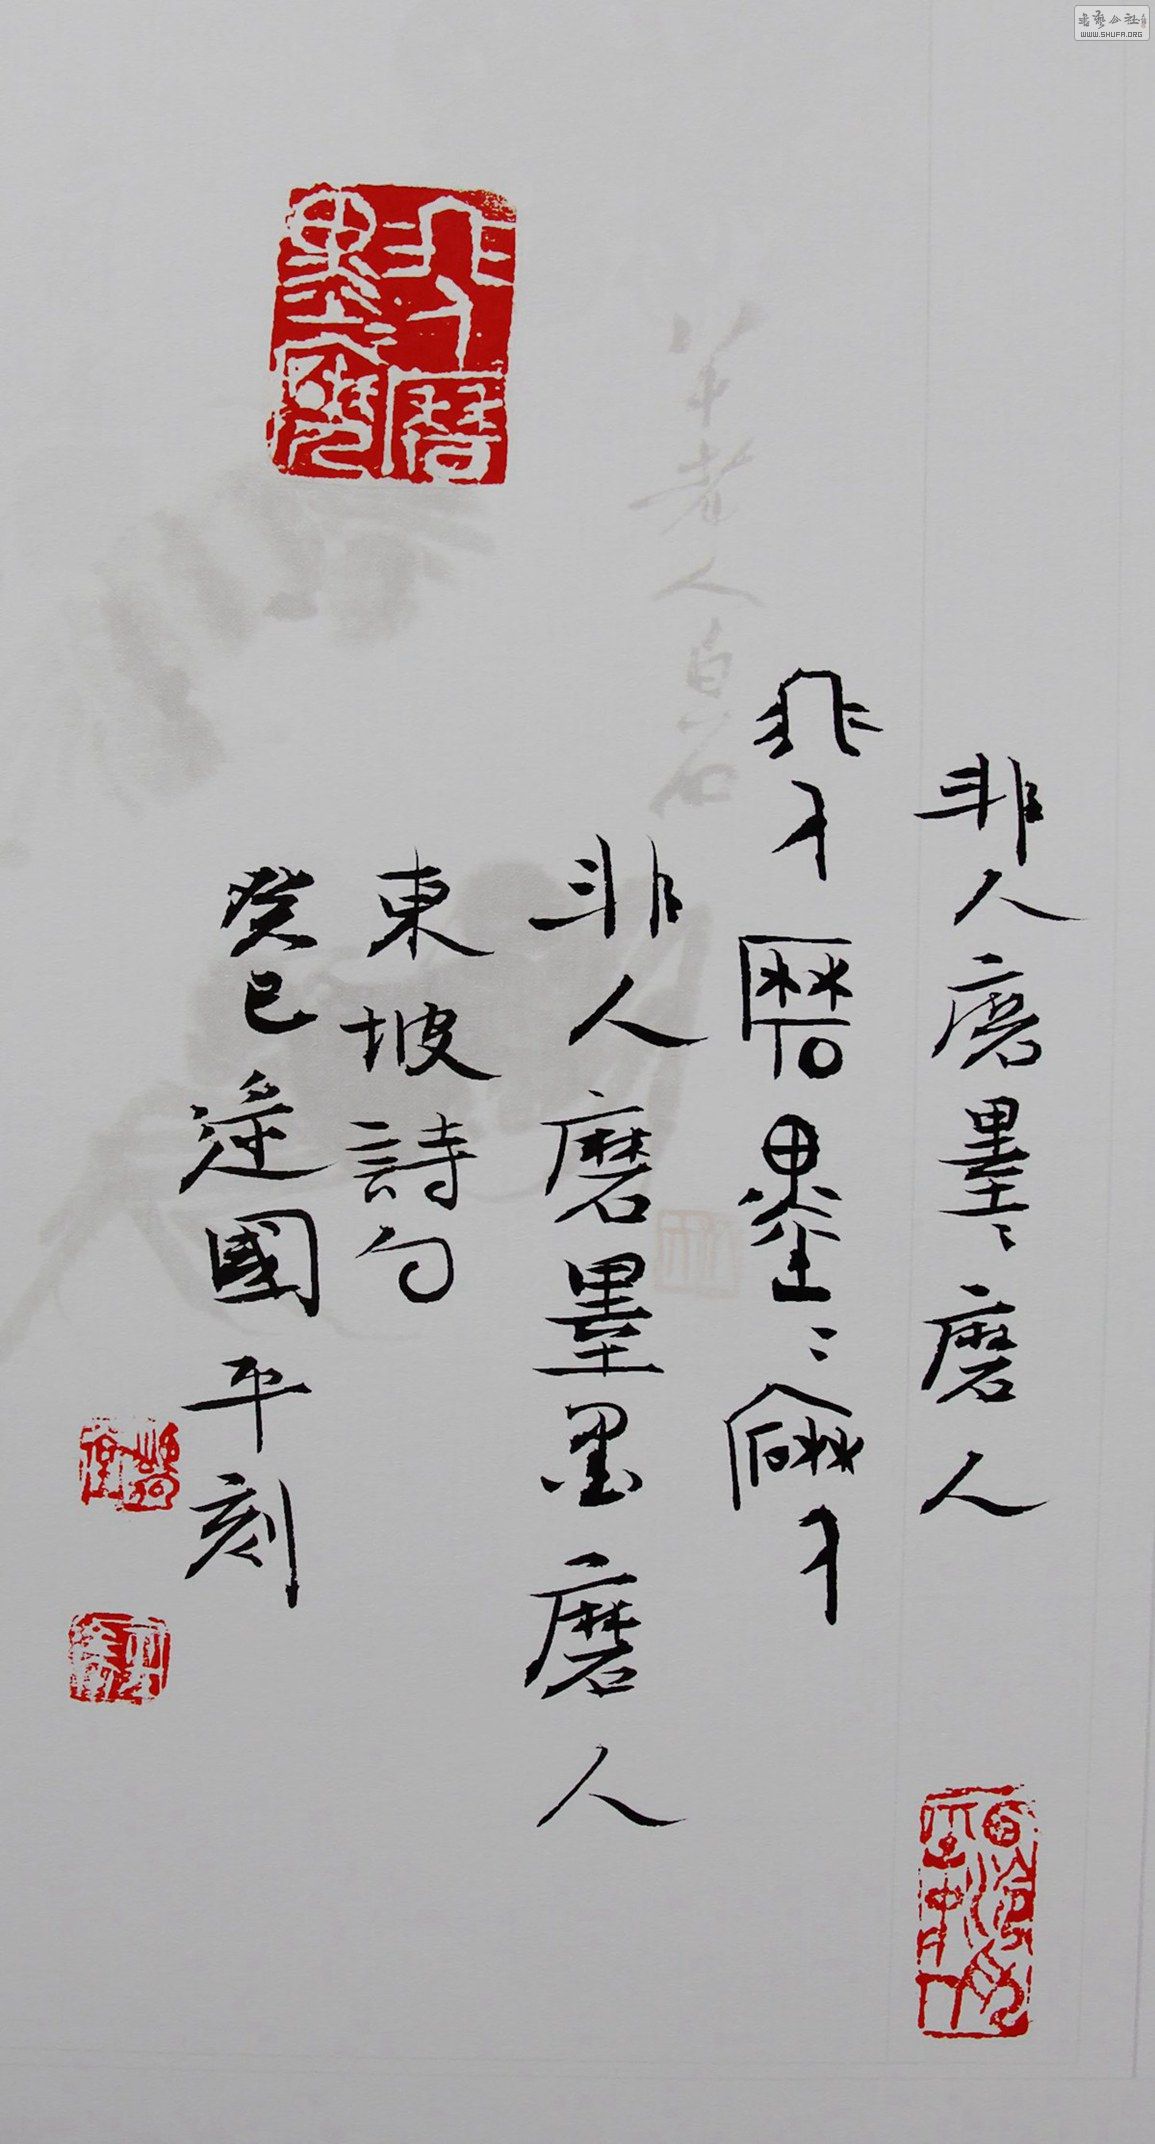 非人磨墨墨磨人
非人磨墨〻磨人
非人磨墨〻磨人
非人磨墨墨磨人
東坡詩句
癸巳 國平刻
年老人白石
WWW.SHUFA.ORG